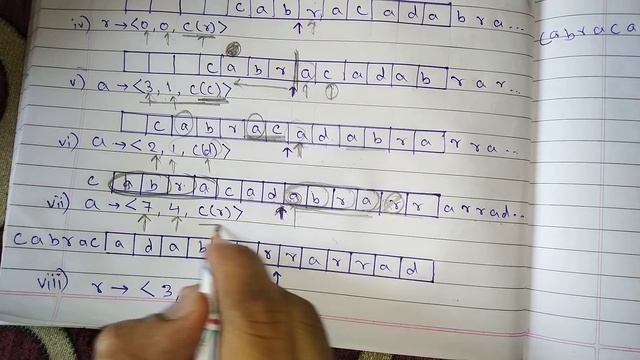 c a b r a c a d a b r a ...
iv) r → <0, 0, c(r)>
c a b r a c a d a b r a r...
v) a → <3, 1, c(c)>
c a b r a c a d a b r a r r a...
vi) a → <2, 1, c(d)>
c a b r a c a d a b r a r r a r r a d...
vii) a → <7, 4, c(r)>
c a b r a c a d a b r r a r r a d
viii) r → <3,
cabraca